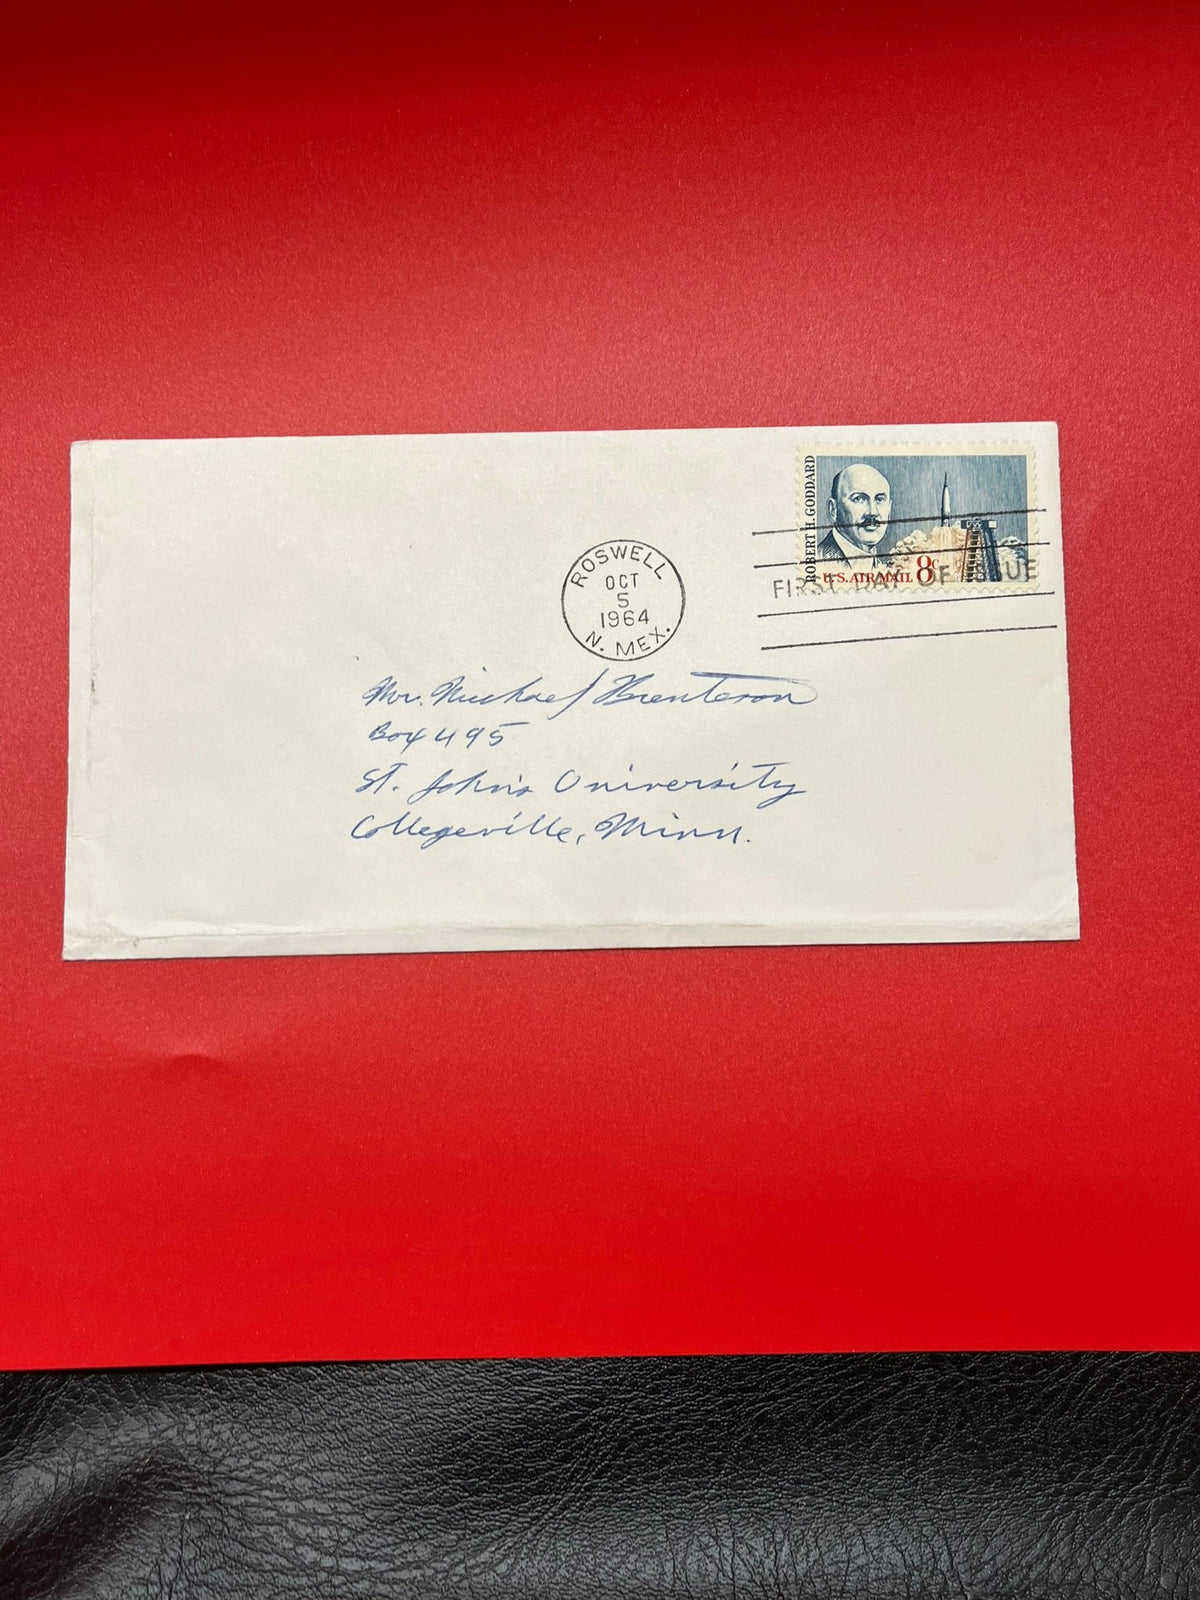 ROBERT H. GODDARD
U.S. AIR MAIL 8c
FIRST DAY OF ISSUE
ROSWELL
OCT
5
1964
N. MEX.
Mr. Michael Brenteson
Box 495
St. John's University
Collegeville, Minn.